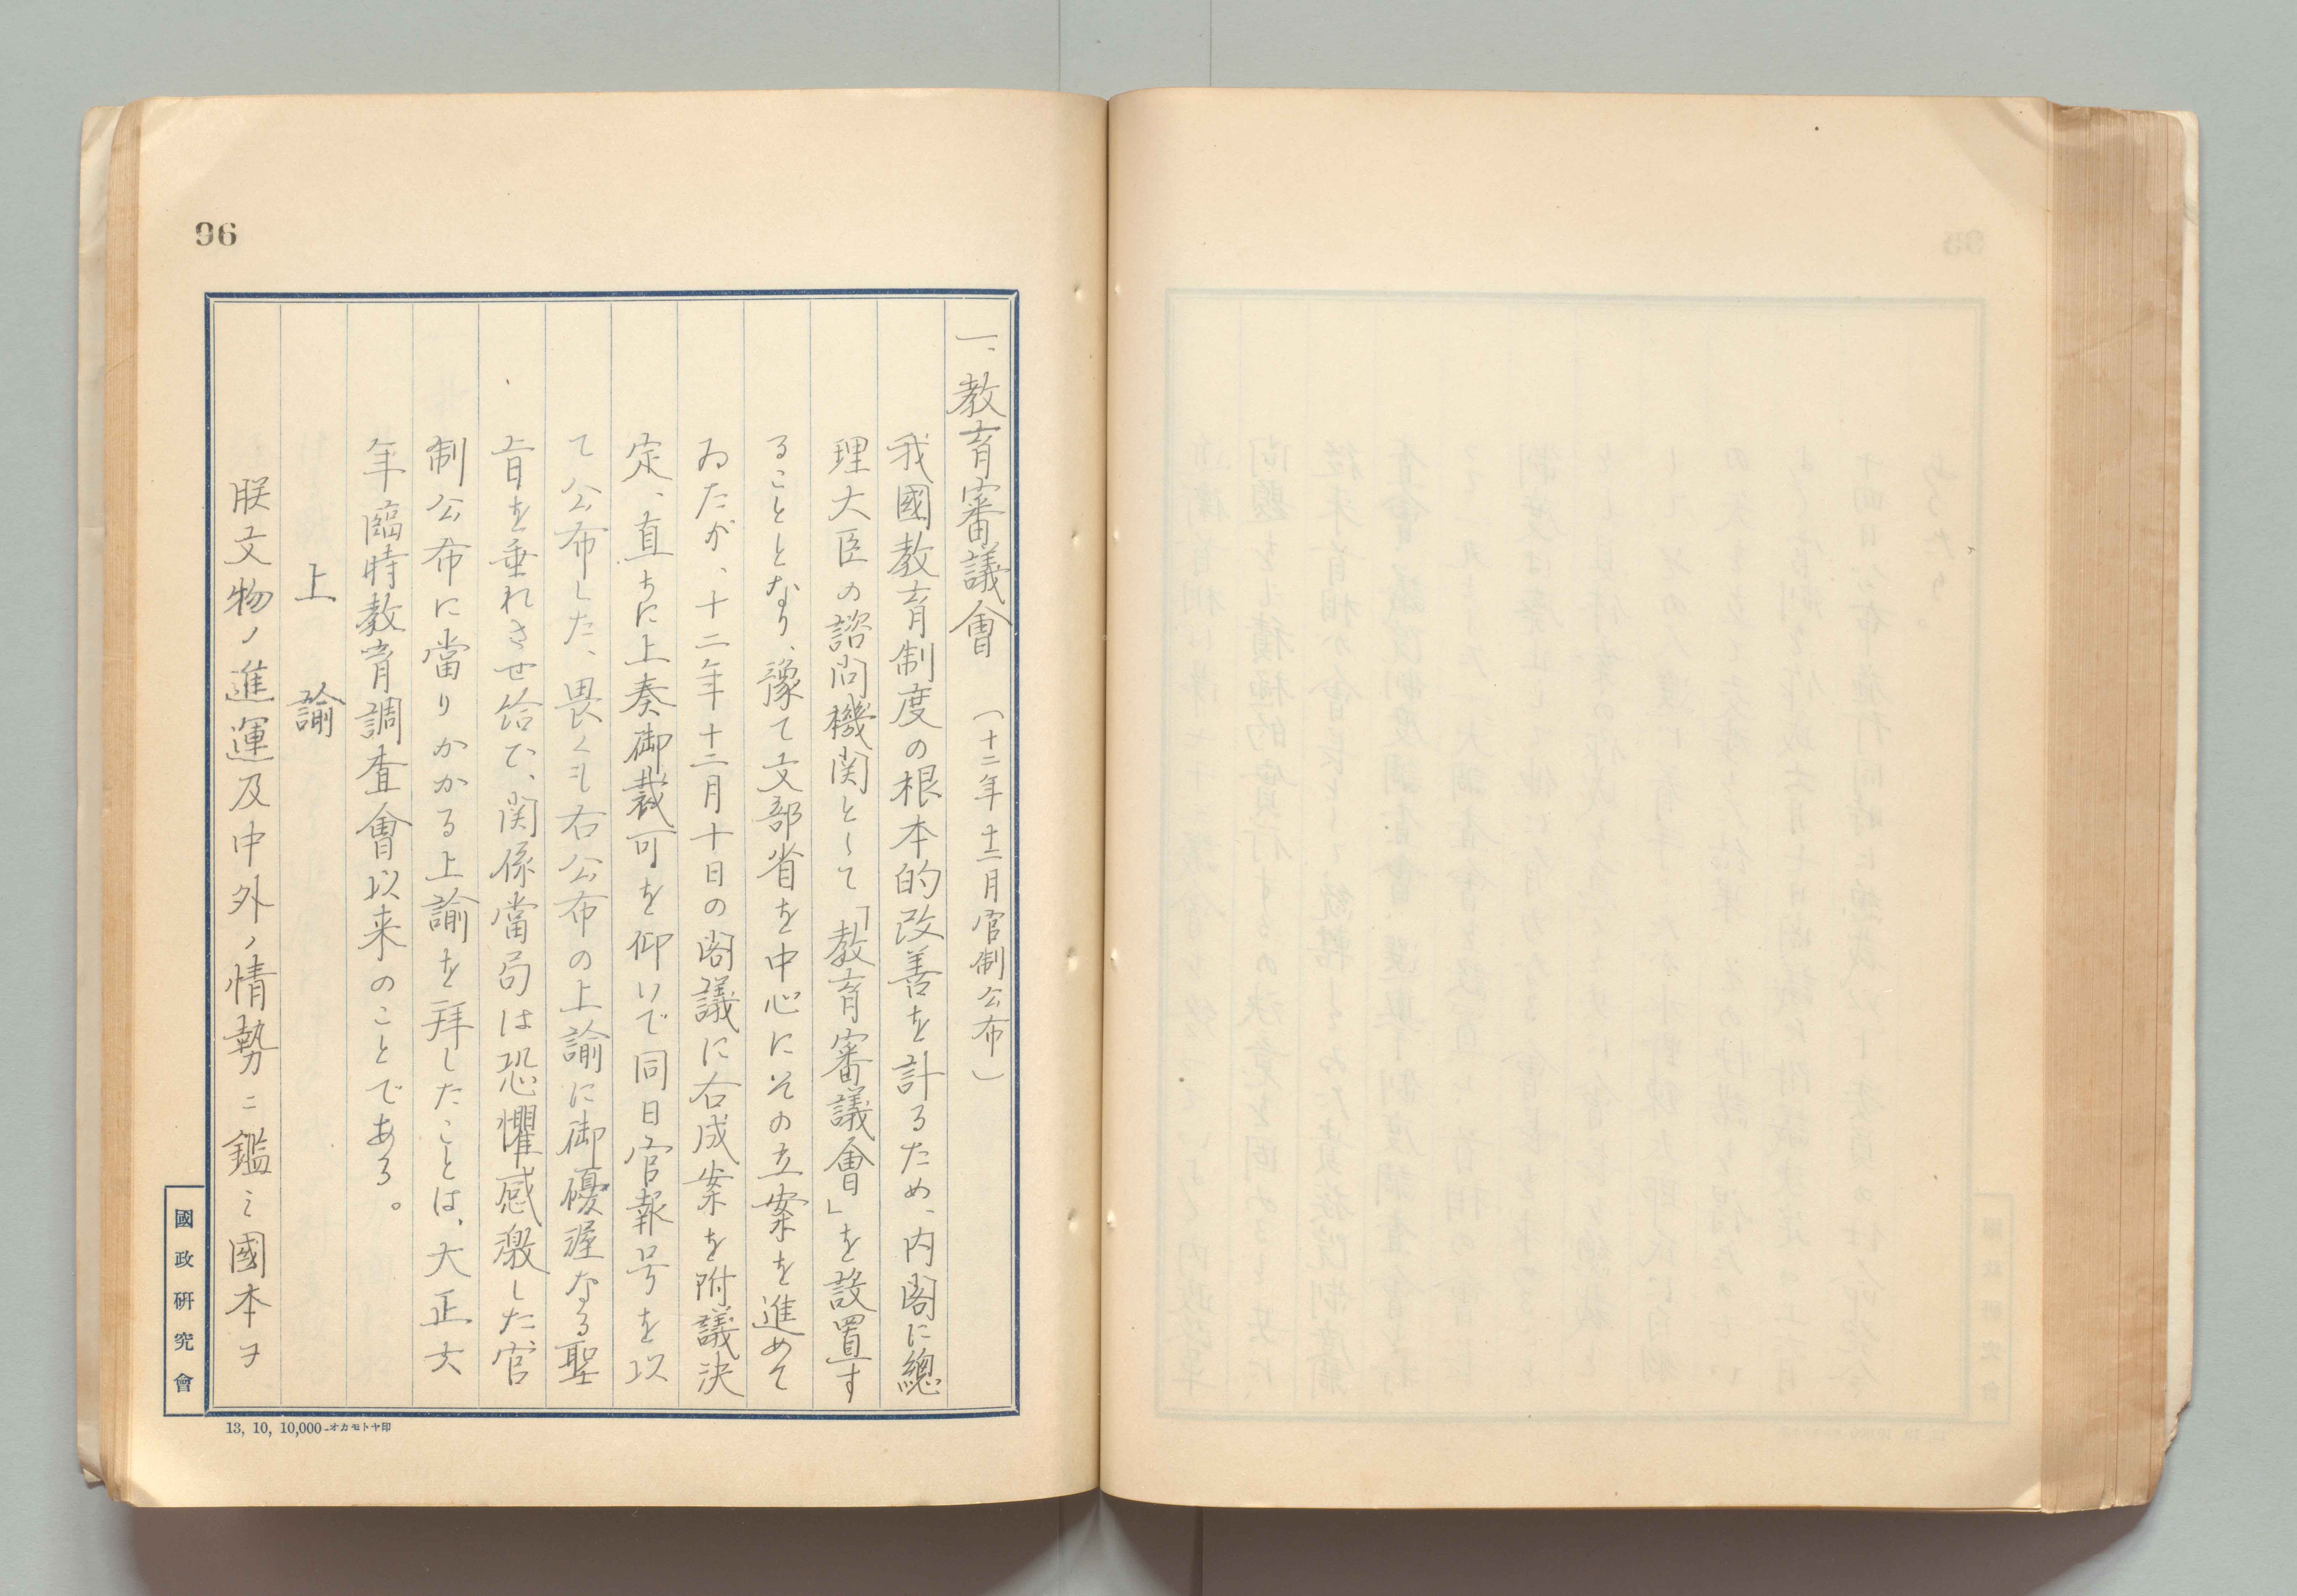 96
一、教育審議會 （十二年十二月官制公布）
我國教育制度の根本的改善を計るため、内閣に總
理大臣の諮問機関として「教育審議會」を設置す
ることとなり、豫て文部省を中心にその立案を進めて
ゐたが、十二年十二月十日の閣議に右成案を附議決
定、直ちに上奏御裁可を仰いで同日官報号を以
て公布した、畏くも右公布の上諭に御優渥なる聖
旨を垂れさせ給ひ、関係當局は恐懼感激した官
制公布に當りかかる上諭を拝したことは、大正六
年臨時教育調査會以来のことである。
上 諭
朕文物ノ進運及中外ノ情勢ニ鑑ミ國本ヲ
國政研究會
13, 10, 10,000-オカモトヤ印